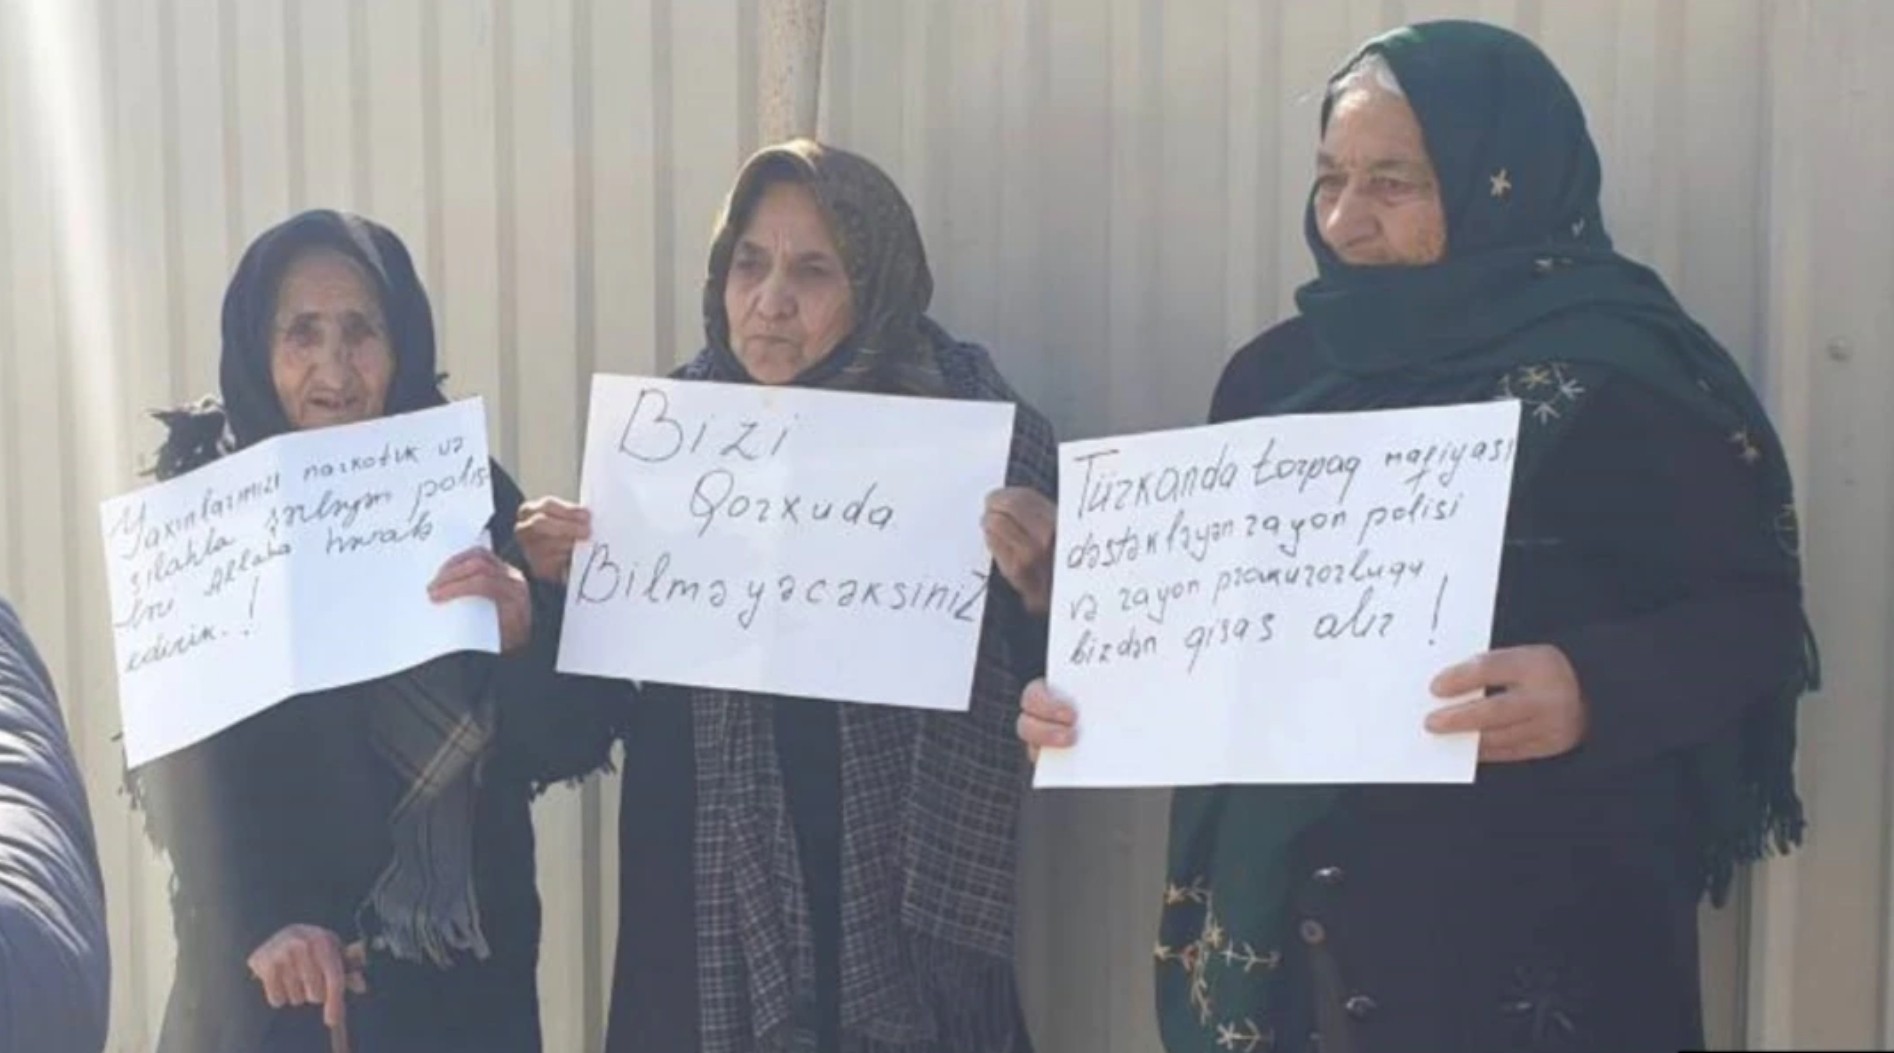 Yaxınlarımızı narkotik və
silahla şərləyən polis
ləri Allaha həvalə
edirik..!
Bizi
Qorxuda
Bilməyəcəksiniz
Türkanda torpaq mafiyası
dəstəkləyən rayon polisi
və rayon prokurorluqu
bizdən qisas alır!